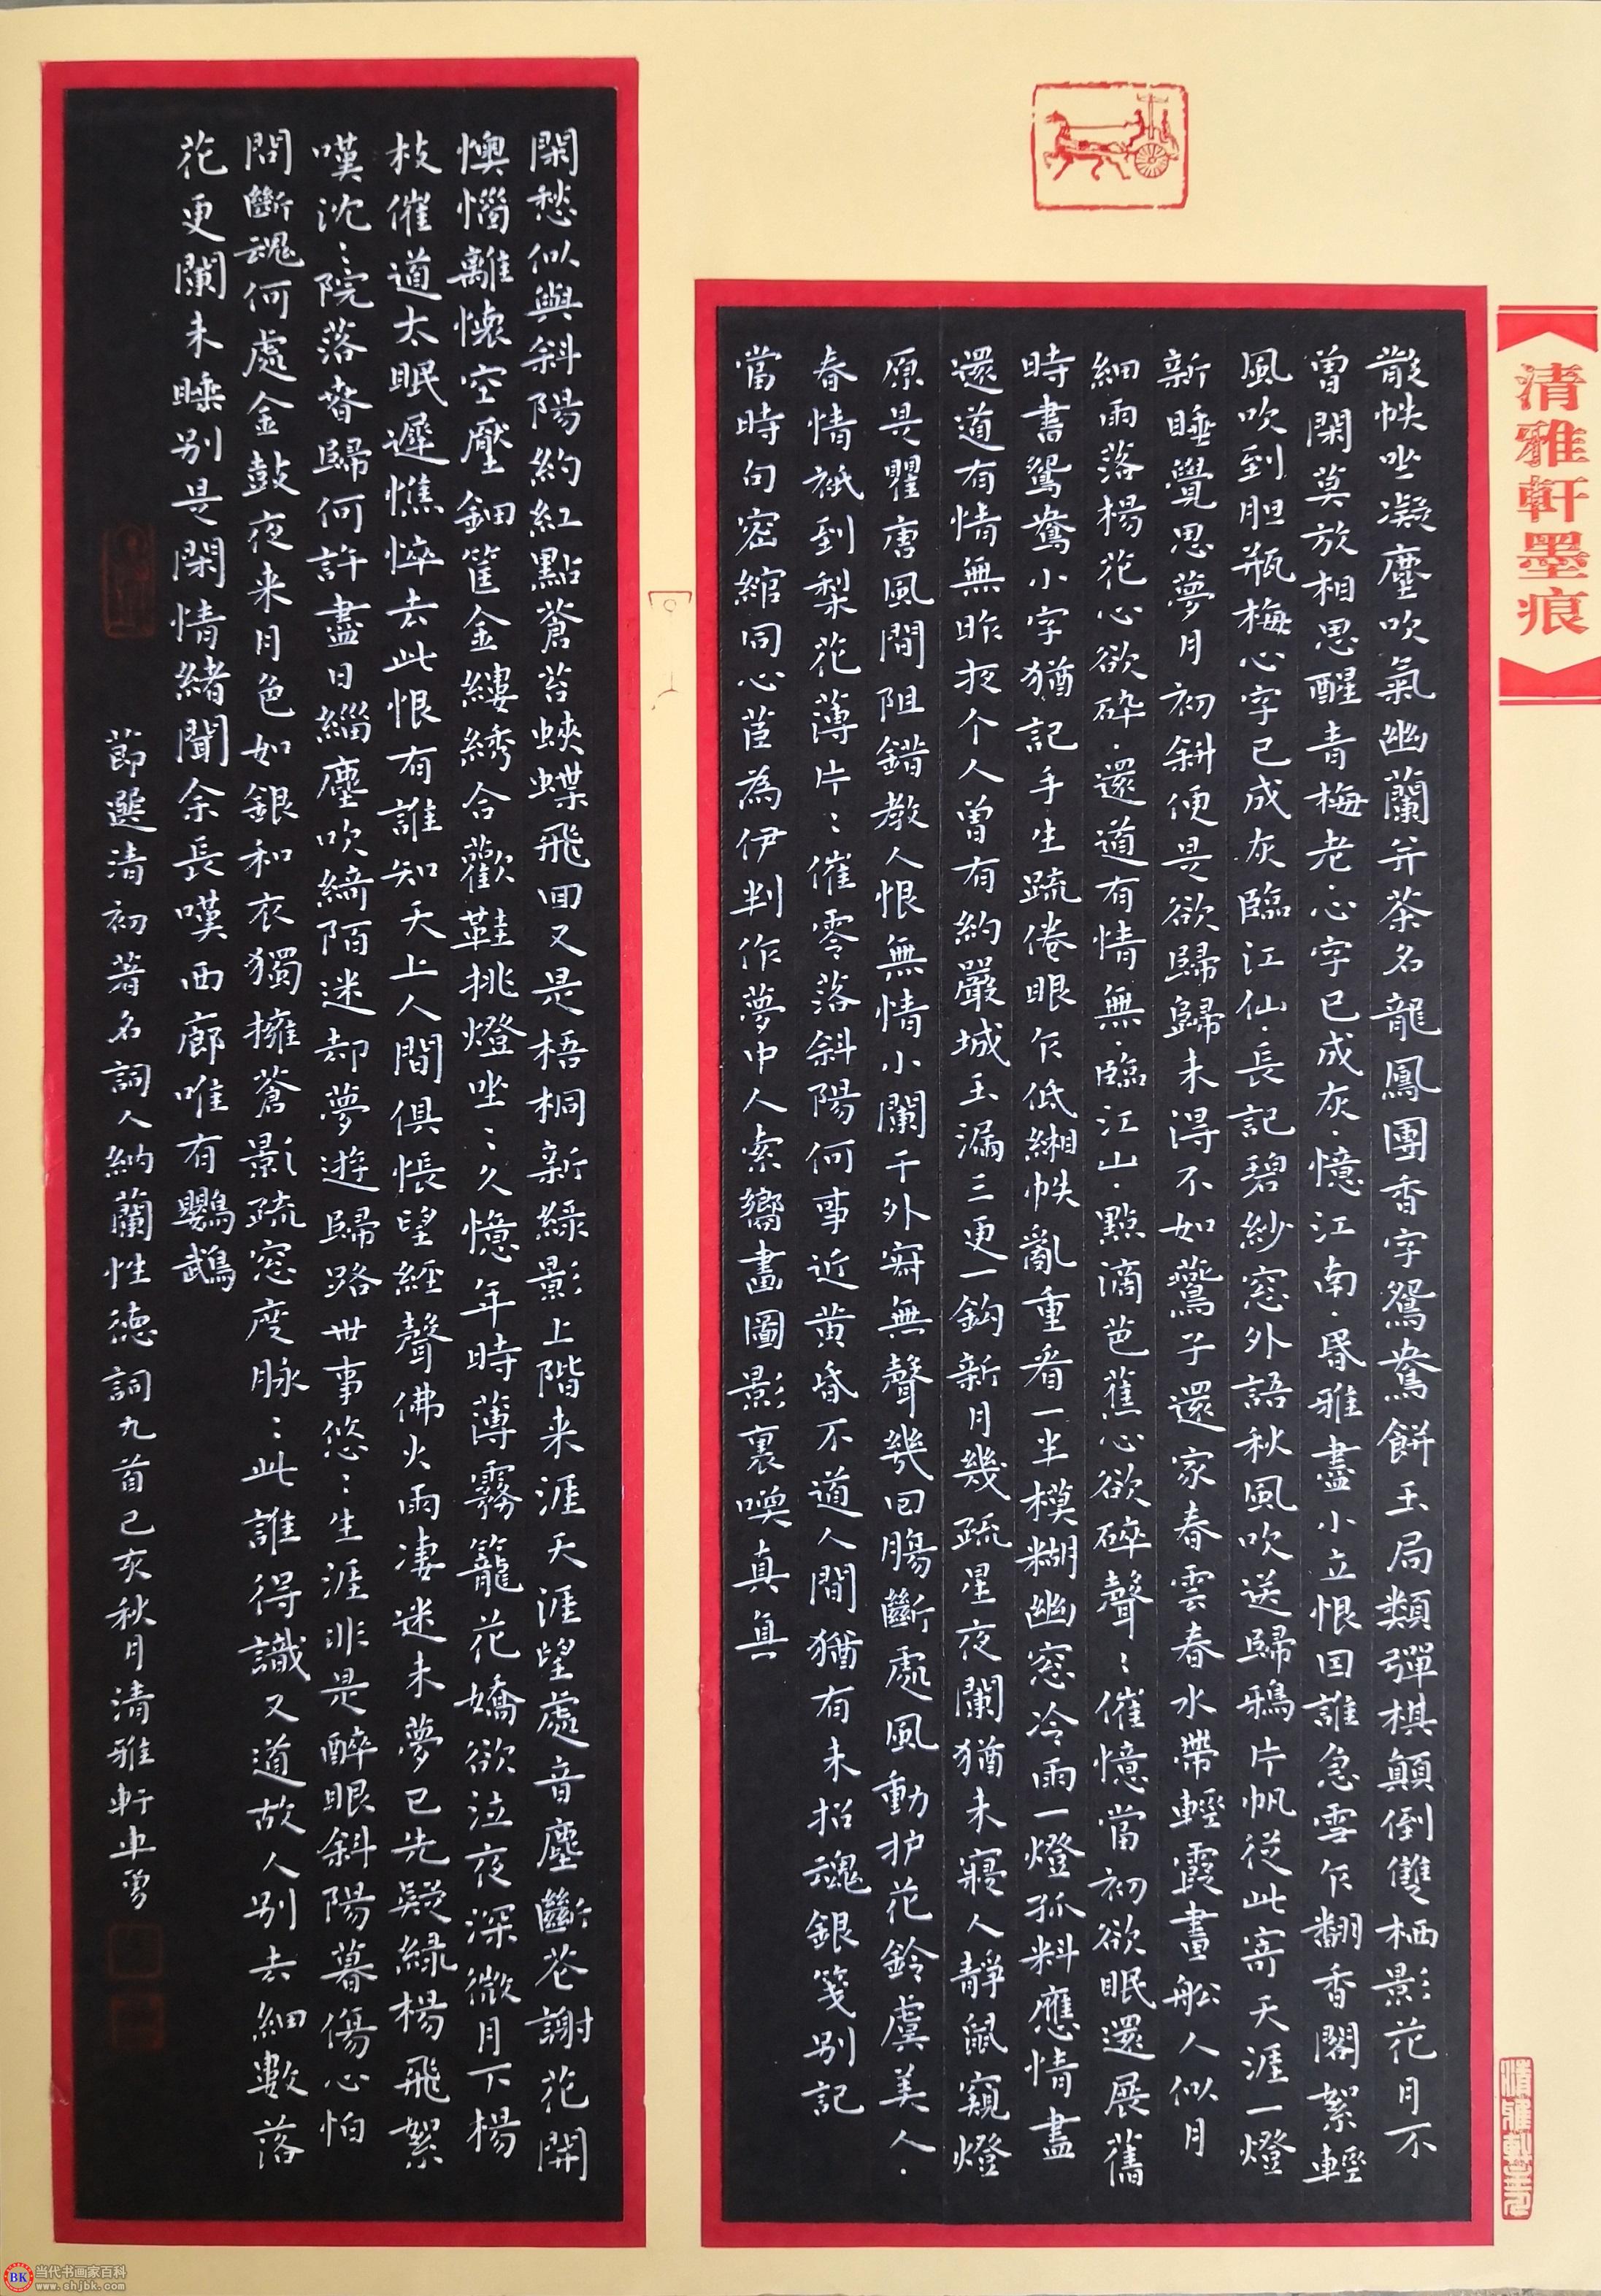 清雅軒墨痕
散帙坐凝塵吹氣幽蘭并茶名龍鳳團香字鴛鴦餅玉局類彈棋顛倒雙栖影花月不
曾閑莫放相思醒青梅老·心字已成灰·憶江南·昏雅盡小立恨回誰急雪乍翻香閣絮輕
風吹到胆瓶梅心字已成灰臨江仙·長記碧紗窓外語秋風吹送歸鴉片帆從此寄天涯一燈
新睡覺思夢月初斜便是欲歸歸未得不如燕子還家春雲春水帶輕霞畫船人似月
細雨落楊花心欲碎·還道有情無·臨江山·點滴芭蕉心欲碎聲〻催憶當初欲眠還展舊
時書鴛鴦小字猶記手生疏倦眼乍低緗帙亂重看一半模糊幽窓冷雨一燈孤料應情盡
還道有情無昨夜个人曾有約嚴城玉漏三更一鈎新月幾疏星夜闌猶未寢人靜鼠窺燈
原是瞿唐風間阻錯教人恨無情小闌干外寂無聲幾回腸斷處風動护花鈴虞美人·
春情祇到梨花薄片〻催零落斜陽何事近黄昏不道人間猶有未招魂銀箋别記
當時句密綰同心苣為伊判作夢中人索嚮畫圖影裏喚真真
閑愁似與斜陽約紅點蒼苔蛺蝶飛回又是梧桐新緑影上階来涯天涯望處音塵斷花謝花開
懊惱離懷空壓鈿筐金縷綉合歡鞋挑燈坐〻久憶年時薄霧籠花嬌欲泣夜深微月下楊
枝催道太眠遲憔悴去此恨有誰知天上人間俱悵望經聲佛火兩凄迷未夢已先疑緑楊飛絮
嘆沈〻院落春歸何許盡日緇塵吹綺陌迷却夢遊歸路世事悠〻生涯非是醉眼斜陽暮傷心怕
問斷魂何處金鼓夜来月色如銀和衣獨擁蒼影疏窓度脉〻此誰得識又道故人别去細數落
花更闌未睡别是閑情緒聞余長嘆西廊唯有鸚鵡
節選清初著名詞人納蘭性德詞九首己亥秋月清雅軒車勇
当代书画家百科
www.shjbk.com
BK